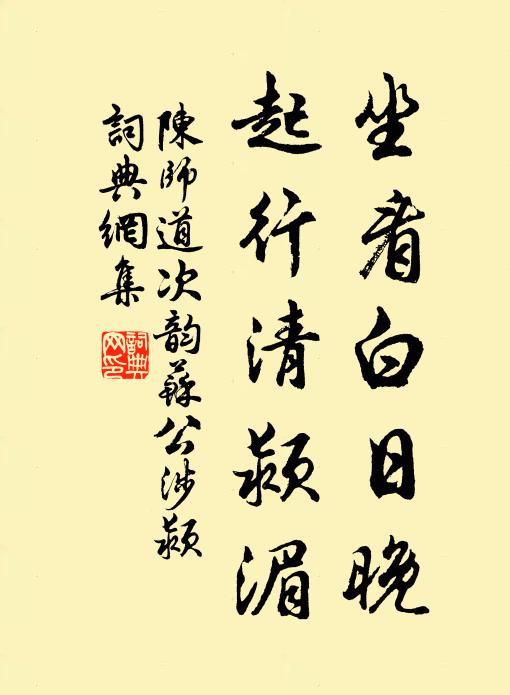 坐看白日晚
起行清颍湄
陳師道次韵蘇公涉颍
詞典網集
詞典網印